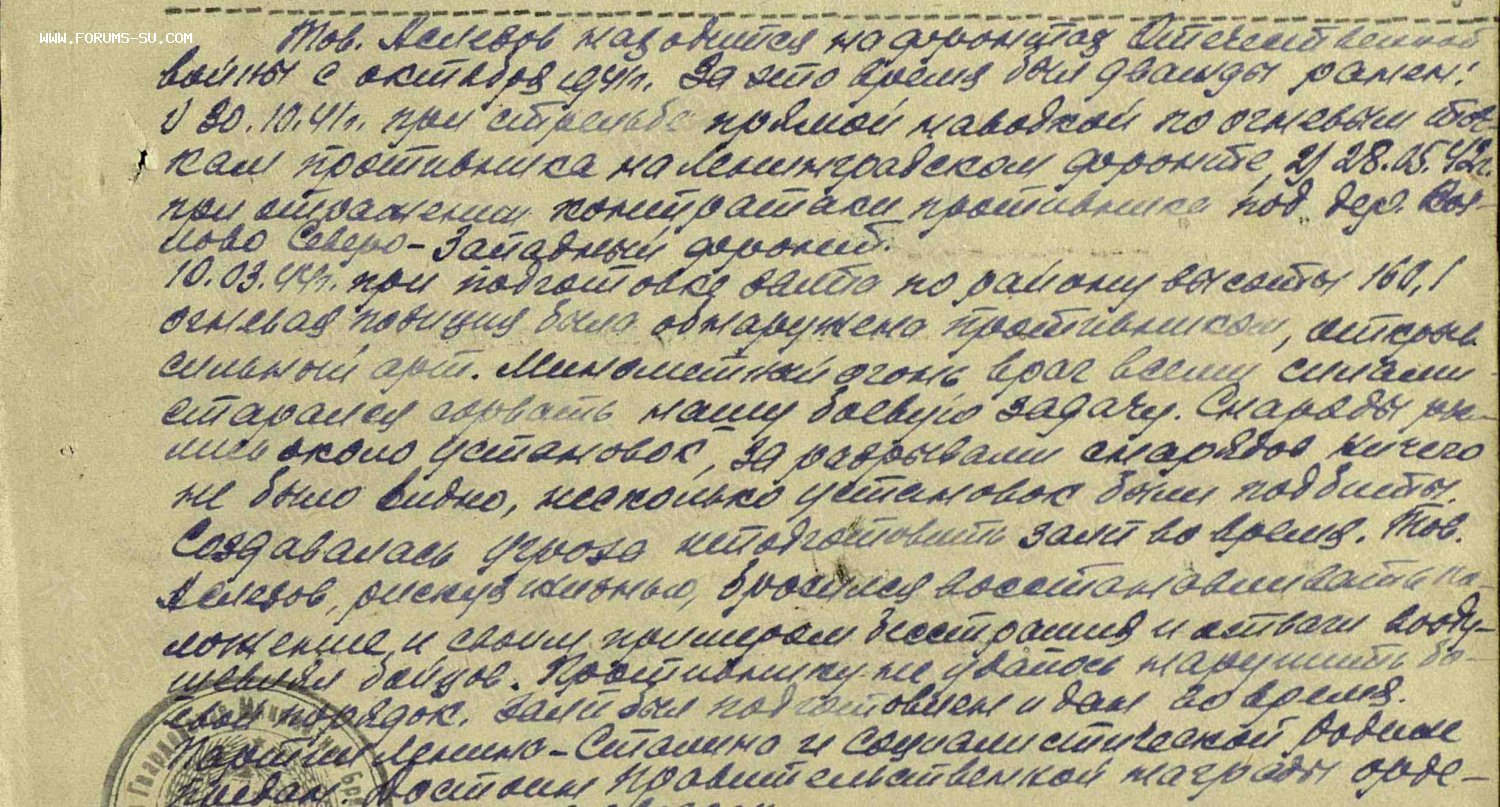 WWW.FORUMS-SU.COM
Тов. находится на фронтах Отечественной
войны с октября 1941г. За это время был дважды ранен:
1) 30.10.41г. при стрельбе прямой наводкой по огневым точ-
кам противника на Ленинградском фронте, 2) 28.05.42г.
при отражении контратаки противника под дер.
Северо-Западный фронт.
10.03.44г. при подготовке залпа по району высоты 160,1
огневая позиция была обнаружена противником, открыв
сильный арт. Минометный огонь враг всеми силами
старался сорвать нашу боевую задачу. Снаряды рва-
лись около установок, за разрывами снарядов ничего
не было видно, несколько установок были подбиты.
Создавалась угроза неподготовить залп во время. Тов.
рискуя жизнью, бросился восстанавливать по-
ложение и своим примером бесстрашия и отваги вооду-
шевлял бойцов. Противнику не удалось нарушить бо-
евой порядок. Залп был подготовлен и дан во время.
Партии Ленина-Сталина и социалистической Родине
предан. Достоин Правительственной награды орде-